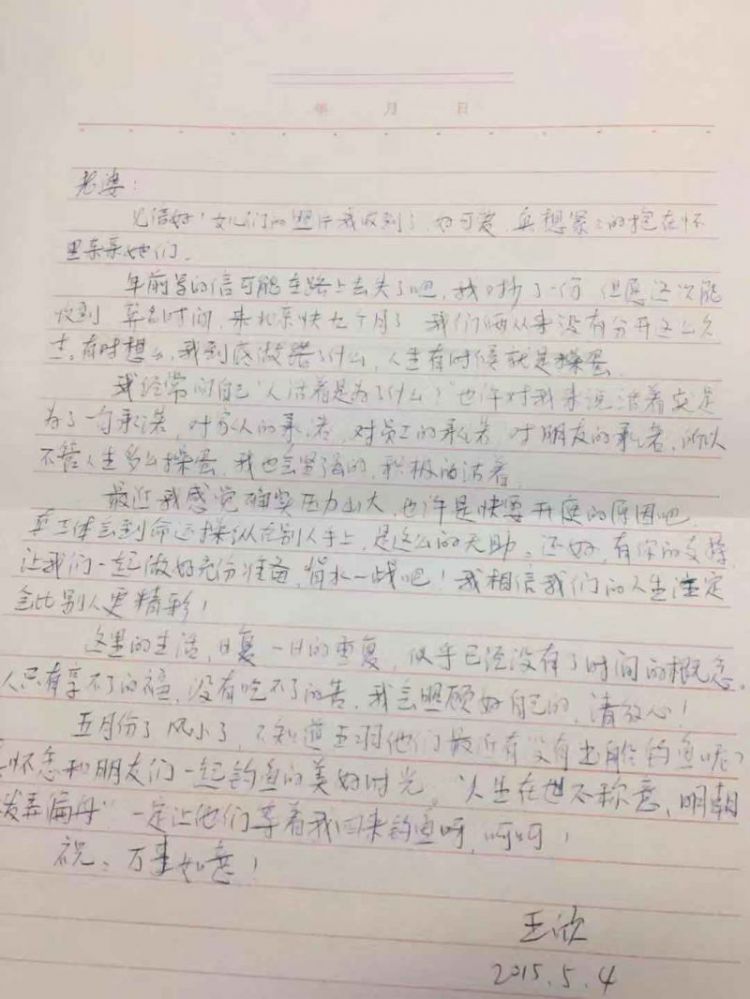 年 月 日
老婆:
见信好!女儿们的照片我收到了 好可爱,真想紧紧的抱在怀
里亲亲她们。
年前写的信可能在路上丢失了吧,我又抄了一份 但愿这次能
收到 算起时间,来北京快九个月了 我们俩从来没有分开这么久
过。有时想想,我到底做错了什么,人生有时候就是操蛋。
我经常问自己“人活着是为了什么?”也许对我来说活着就是
为了一句承诺,对家人的承诺,对员工的承诺,对朋友的承诺,所以
不管人生多么操蛋,我也会坚强的,积极的活着。
最近我感觉确实压力山大,也许是快要开庭的原因吧,
真正体会到命运操纵在别人手上,是这么的无助。还好,有你的支持
让我们一起做好充份准备,背水一战吧!我相信我们的人生注定
会比别人更精彩!
这里的生活,日复一日的重复,似乎已经没有了时间的概念。
人只有享不了的福,没有吃不了的苦,我会照顾好自己的,请放心!
五月份了 风小了,不知道 他们最近有没有出船钓鱼呢?
怀念和朋友们一起钓鱼的美好时光,“人生在世不称意,明朝
散发弄扁舟”一定让他们等着我回来钓鱼呀,呵呵!
祝:万事如意!
王欣
2015.5.4